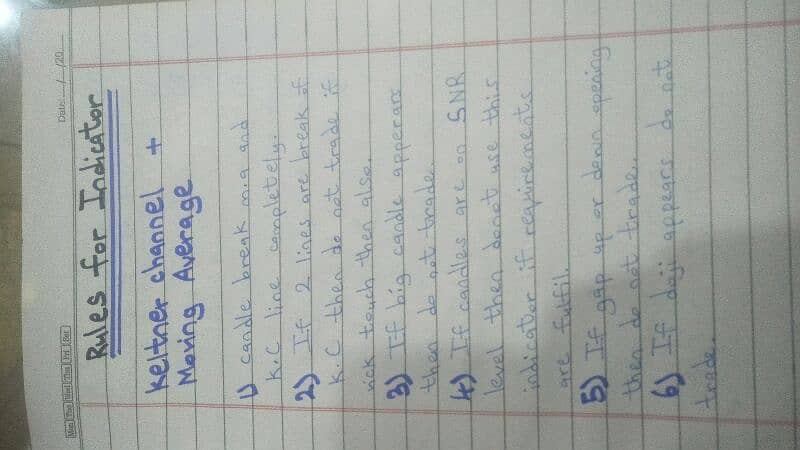 Mon Tue Wed Thu Fri Sat
Date: / /20
Rules for Indicator
Keltner channel +
Moving Average
1) candle break m.a and
K.C line completely.
2) If 2 lines are break of
K.C then do not trade if
wick touch then also.
3) If big candle apperars
then do not trade.
4) If candles are on SNR
level then donot use this
indicator if requirements
are fulfil.
5) If gap up or down opening
then do not trade.
6) If doji appears do not
trade.